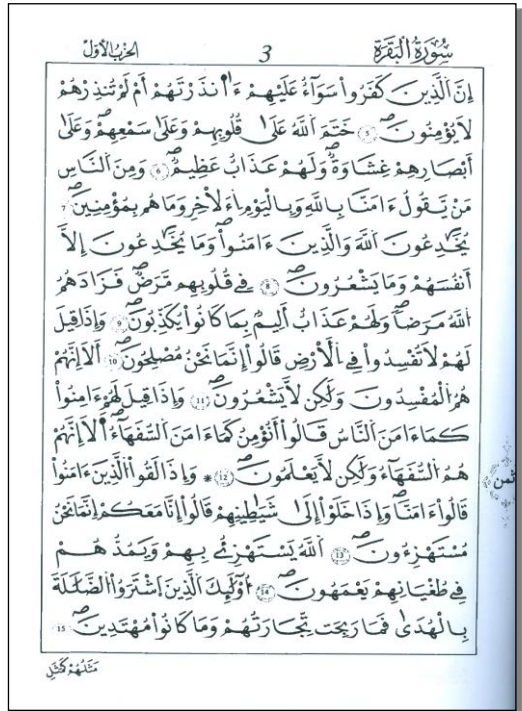 سُورَةُ الْبَقَرَةِ 3 الحِزْبُ الأَوَّل
إِنَّ اَلَّذِينَ كَفَرُواْ سَوَآءٌ عَلَيْهِمْ ءَآنذَرْتَهُمْ أَمْ لَمْ تُنذِرْهُمْ
لَا يُؤْمِنُونَ 5 خَتَمَ اَللَّهُ عَلَىٰ قُلُوبِهِمْ وَعَلَىٰ سَمْعِهِمْ وَعَلَىٰ
أَبْصَٰرِهِمْ غِشَٰوَةٌ وَلَهُمْ عَذَابٌ عَظِيمٌ 6 وَمِنَ اَلنَّاسِ
مَنْ يَّقُولُ ءَامَنَّا بِاللَّهِ وَبِالْيَوْمِ اِءَلَاخِرِ وَمَا هُم بِمُؤْمِنِينَ 7
يُخَٰدِعُونَ اَللَّهَ وَالَّذِينَ ءَامَنُواْ وَمَا يُخَٰدِعُونَ إِلَّا
أَنفُسَهُمْ وَمَا يَشْعُرُونَ 8 فِے قُلُوبِهِم مَّرَضٌ فَزَادَهُمُ
اَللَّهُ مَرَضاً وَلَهُمْ عَذَابٌ أَلِيمٌ بِمَا كَانُواْ يُكَذِّبُونَ 9 وَإِذَا قِيلَ
لَهُمْ لَا تُفْسِدُواْ فِے اِلْأَرْضِ قَالُواْ إِنَّمَا نَحْنُ مُصْلِحُونَ 10 أَلَا إِنَّهُمْ
هُمُ اُلْمُفْسِدُونَ وَلَٰكِن لَّا يَشْعُرُونَ 11 وَإِذَا قِيلَ لَهُمْ ءَامِنُواْ
كَمَا ءَامَنَ اَلنَّاسُ قَالُواْ أَنُؤْمِنُ كَمَا ءَامَنَ اَلسُّفَهَآءُ أَلَا إِنَّهُمْ
هُمُ اُلسُّفَهَآءُ وَلَٰكِن لَّا يَعْلَمُونَ 12 * وَإِذَا لَقُواْ اُلَّذِينَ ءَامَنُواْ
ثمن
قَالُواْ ءَامَنَّا وَإِذَا خَلَوْاْ اِلَىٰ شَيَٰطِينِهِمْ قَالُواْ إِنَّا مَعَكُمْ إِنَّمَا نَحْنُ
مُسْتَهْزِءُونَ 13 اَللَّهُ يَسْتَهْزِئُ بِهِمْ وَيَمُدُّهُمْ
فِے طُغْيَٰنِهِمْ يَعْمَهُونَ 14 أُوْلَٰئِكَ اَلَّذِينَ اَشْتَرَوُاْ اُلضَّلَٰلَةَ
بِالْهُدَىٰ فَمَا رَبِحَت تِّجَٰرَتُهُمْ وَمَا كَانُواْ مُهْتَدِينَ 15
مَثَلُهُمْ كَمَثَلِ